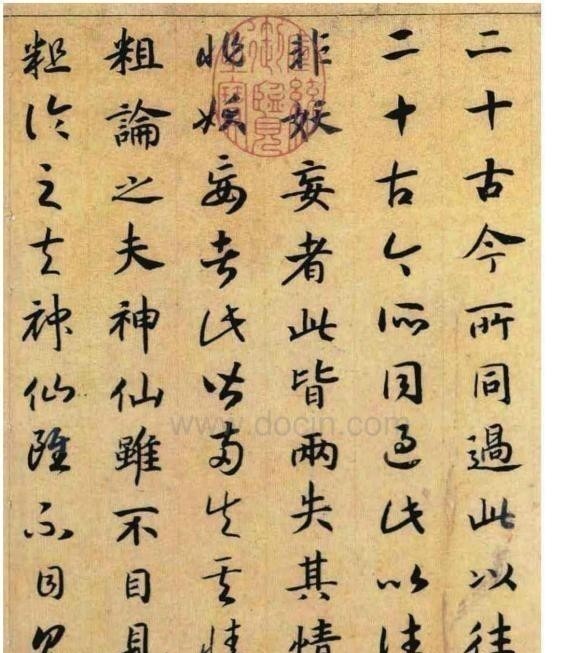 二十古今所同過此以往
二十古今所同過此以往
非妖妄者此皆兩失其情
非妖妄者此皆兩失其情
粗論之夫神仙雖不目見
粗論之夫神仙雖不目見
乾隆御覽之寶
www.docin.com